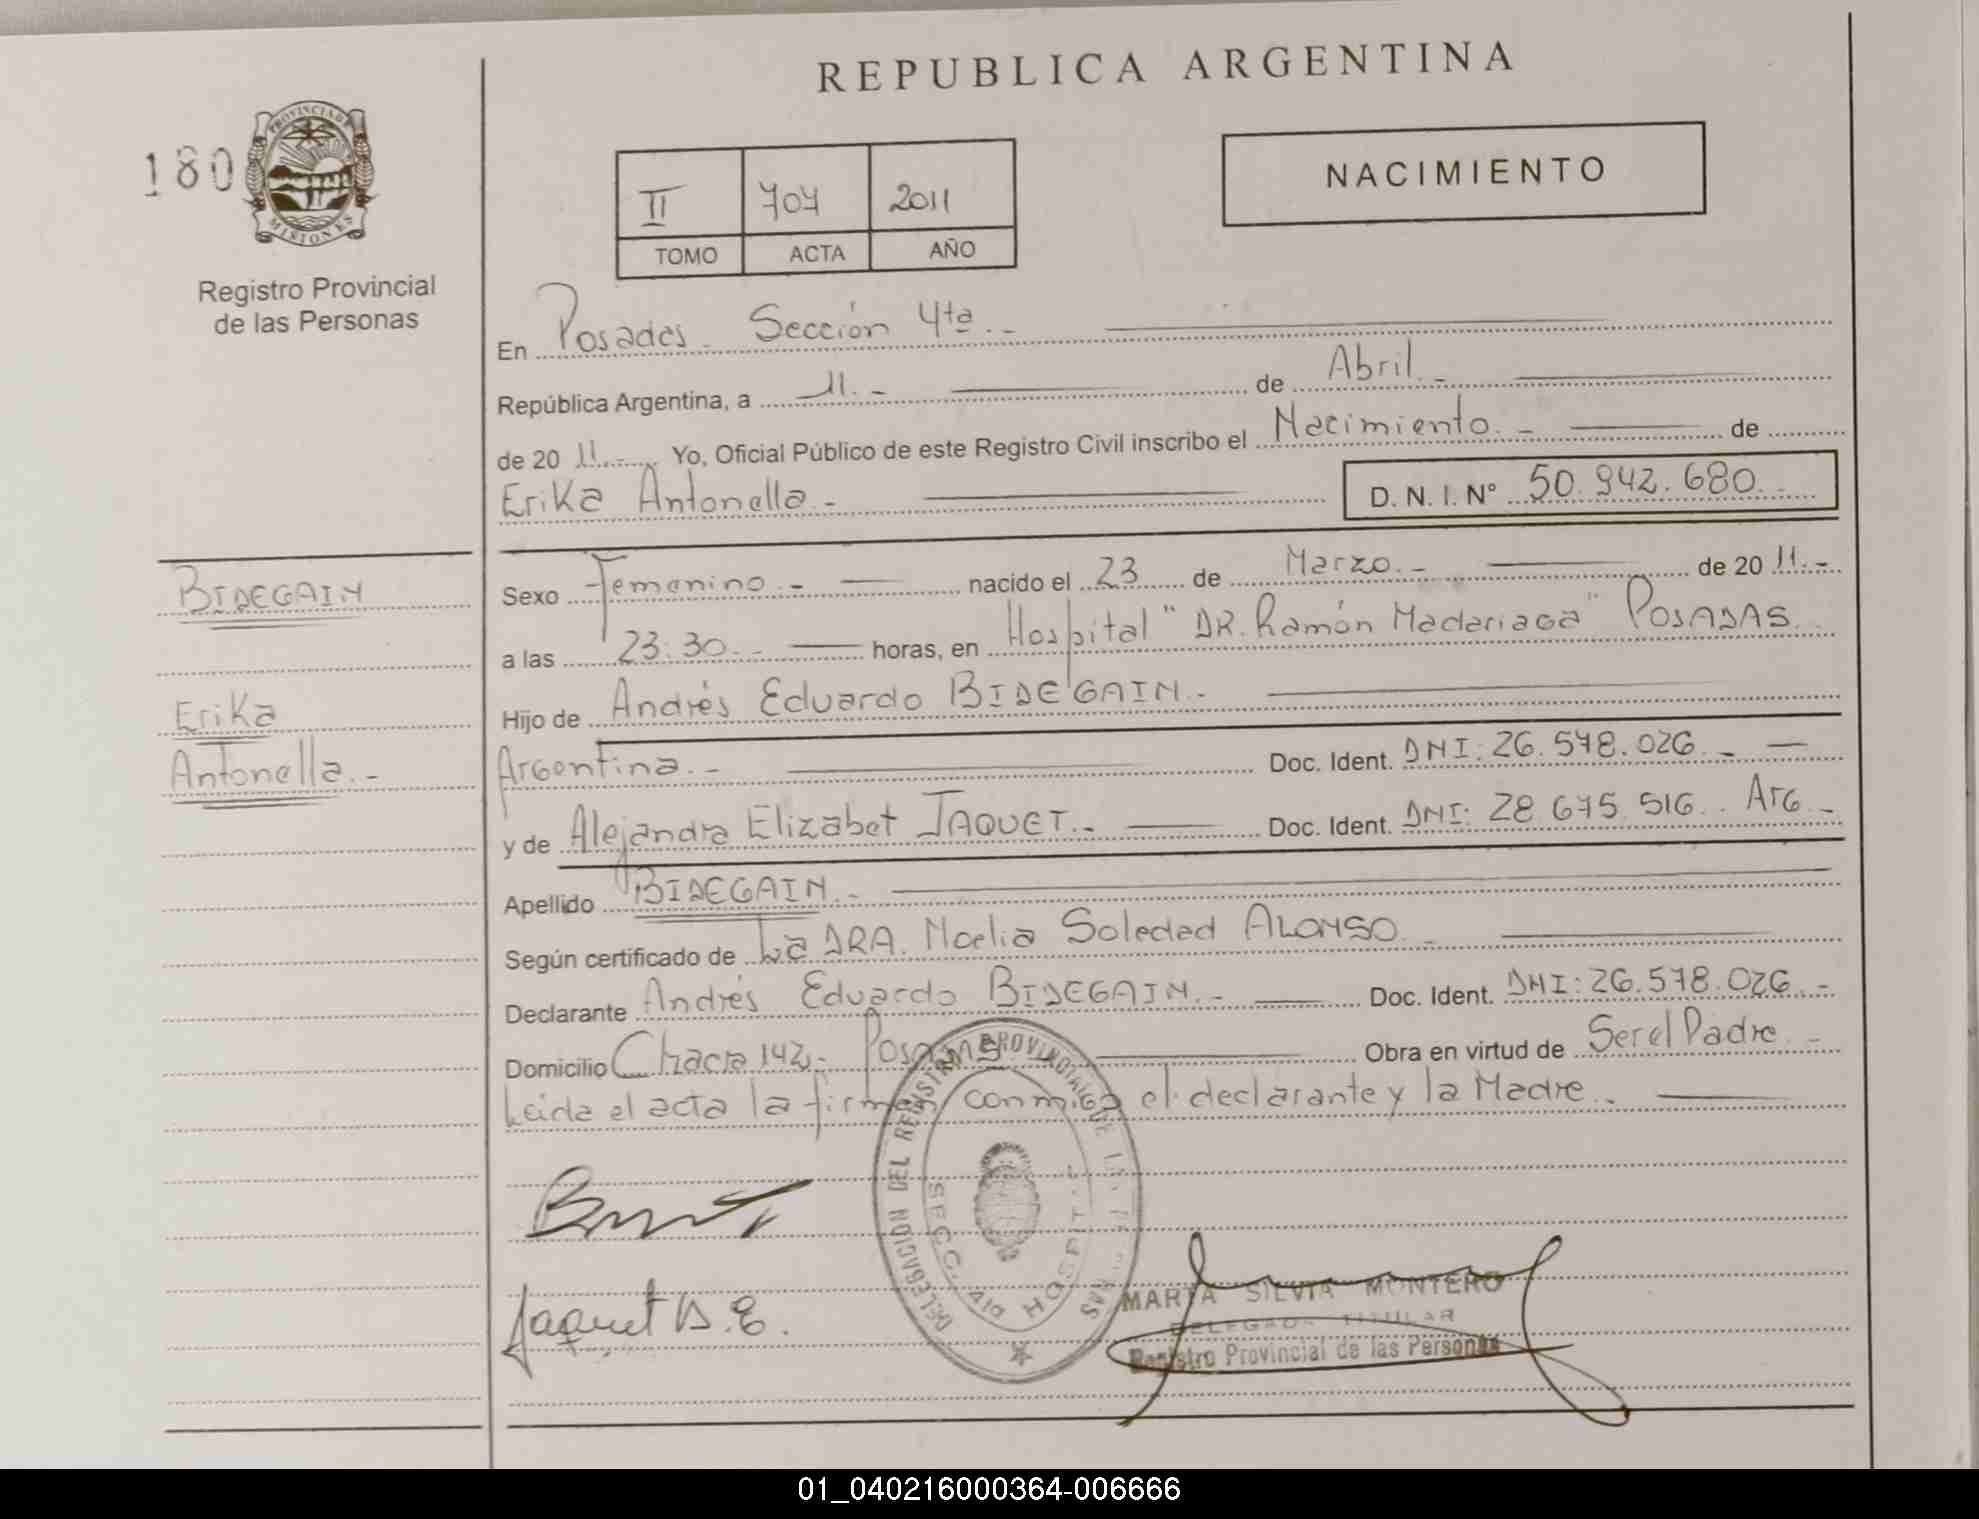 REPUBLICA ARGENTINA
180
PROVINCIA DE
MISIONES
Registro Provincial
de las Personas
II 704 2011
TOMO ACTA AÑO
NACIMIENTO
En Posadas Sección 4ta.-
República Argentina, a 11.- de Abril.-
de 20 11.- Yo, Oficial Público de este Registro Civil inscribo el Nacimiento.- de
Erika Antonella.- D. N. I. Nº 50.942.680.-
BIDEGAIN
Erika
Antonella.-
Sexo Femenino.- nacido el 23 de Marzo.- de 20 11.-
a las 23:30.- horas, en Hospital "DR. Ramón Madariaga" POSADAS.
Hijo de Andrés Eduardo BIDEGAIN.-
Argentina.- Doc. Ident. DNI: 26.578.026.-
y de Alejandra Elizabet JAQUET.- Doc. Ident. DNI: 28.675.516. Arg.-
Apellido BIDEGAIN.-
Según certificado de La DRA. Noelia Soledad ALONSO.-
Declarante Andrés Eduardo BIDEGAIN.- Doc. Ident. DNI: 26.578.026.-
Domicilio Chacra 142.- Posadas Obra en virtud de Ser el Padre.-
Leida el acta la firma conmigo el declarante y la Madre.-
DELEGACION DEL REGISTRO PROVINCIAL DE LAS
SECC. 4ta HOSPITAL
Jaquet A.E.
MARTA SILVIA MONTERO
DELEGADA TITULAR
Registro Provincial de las Personas
01_040216000364-006666